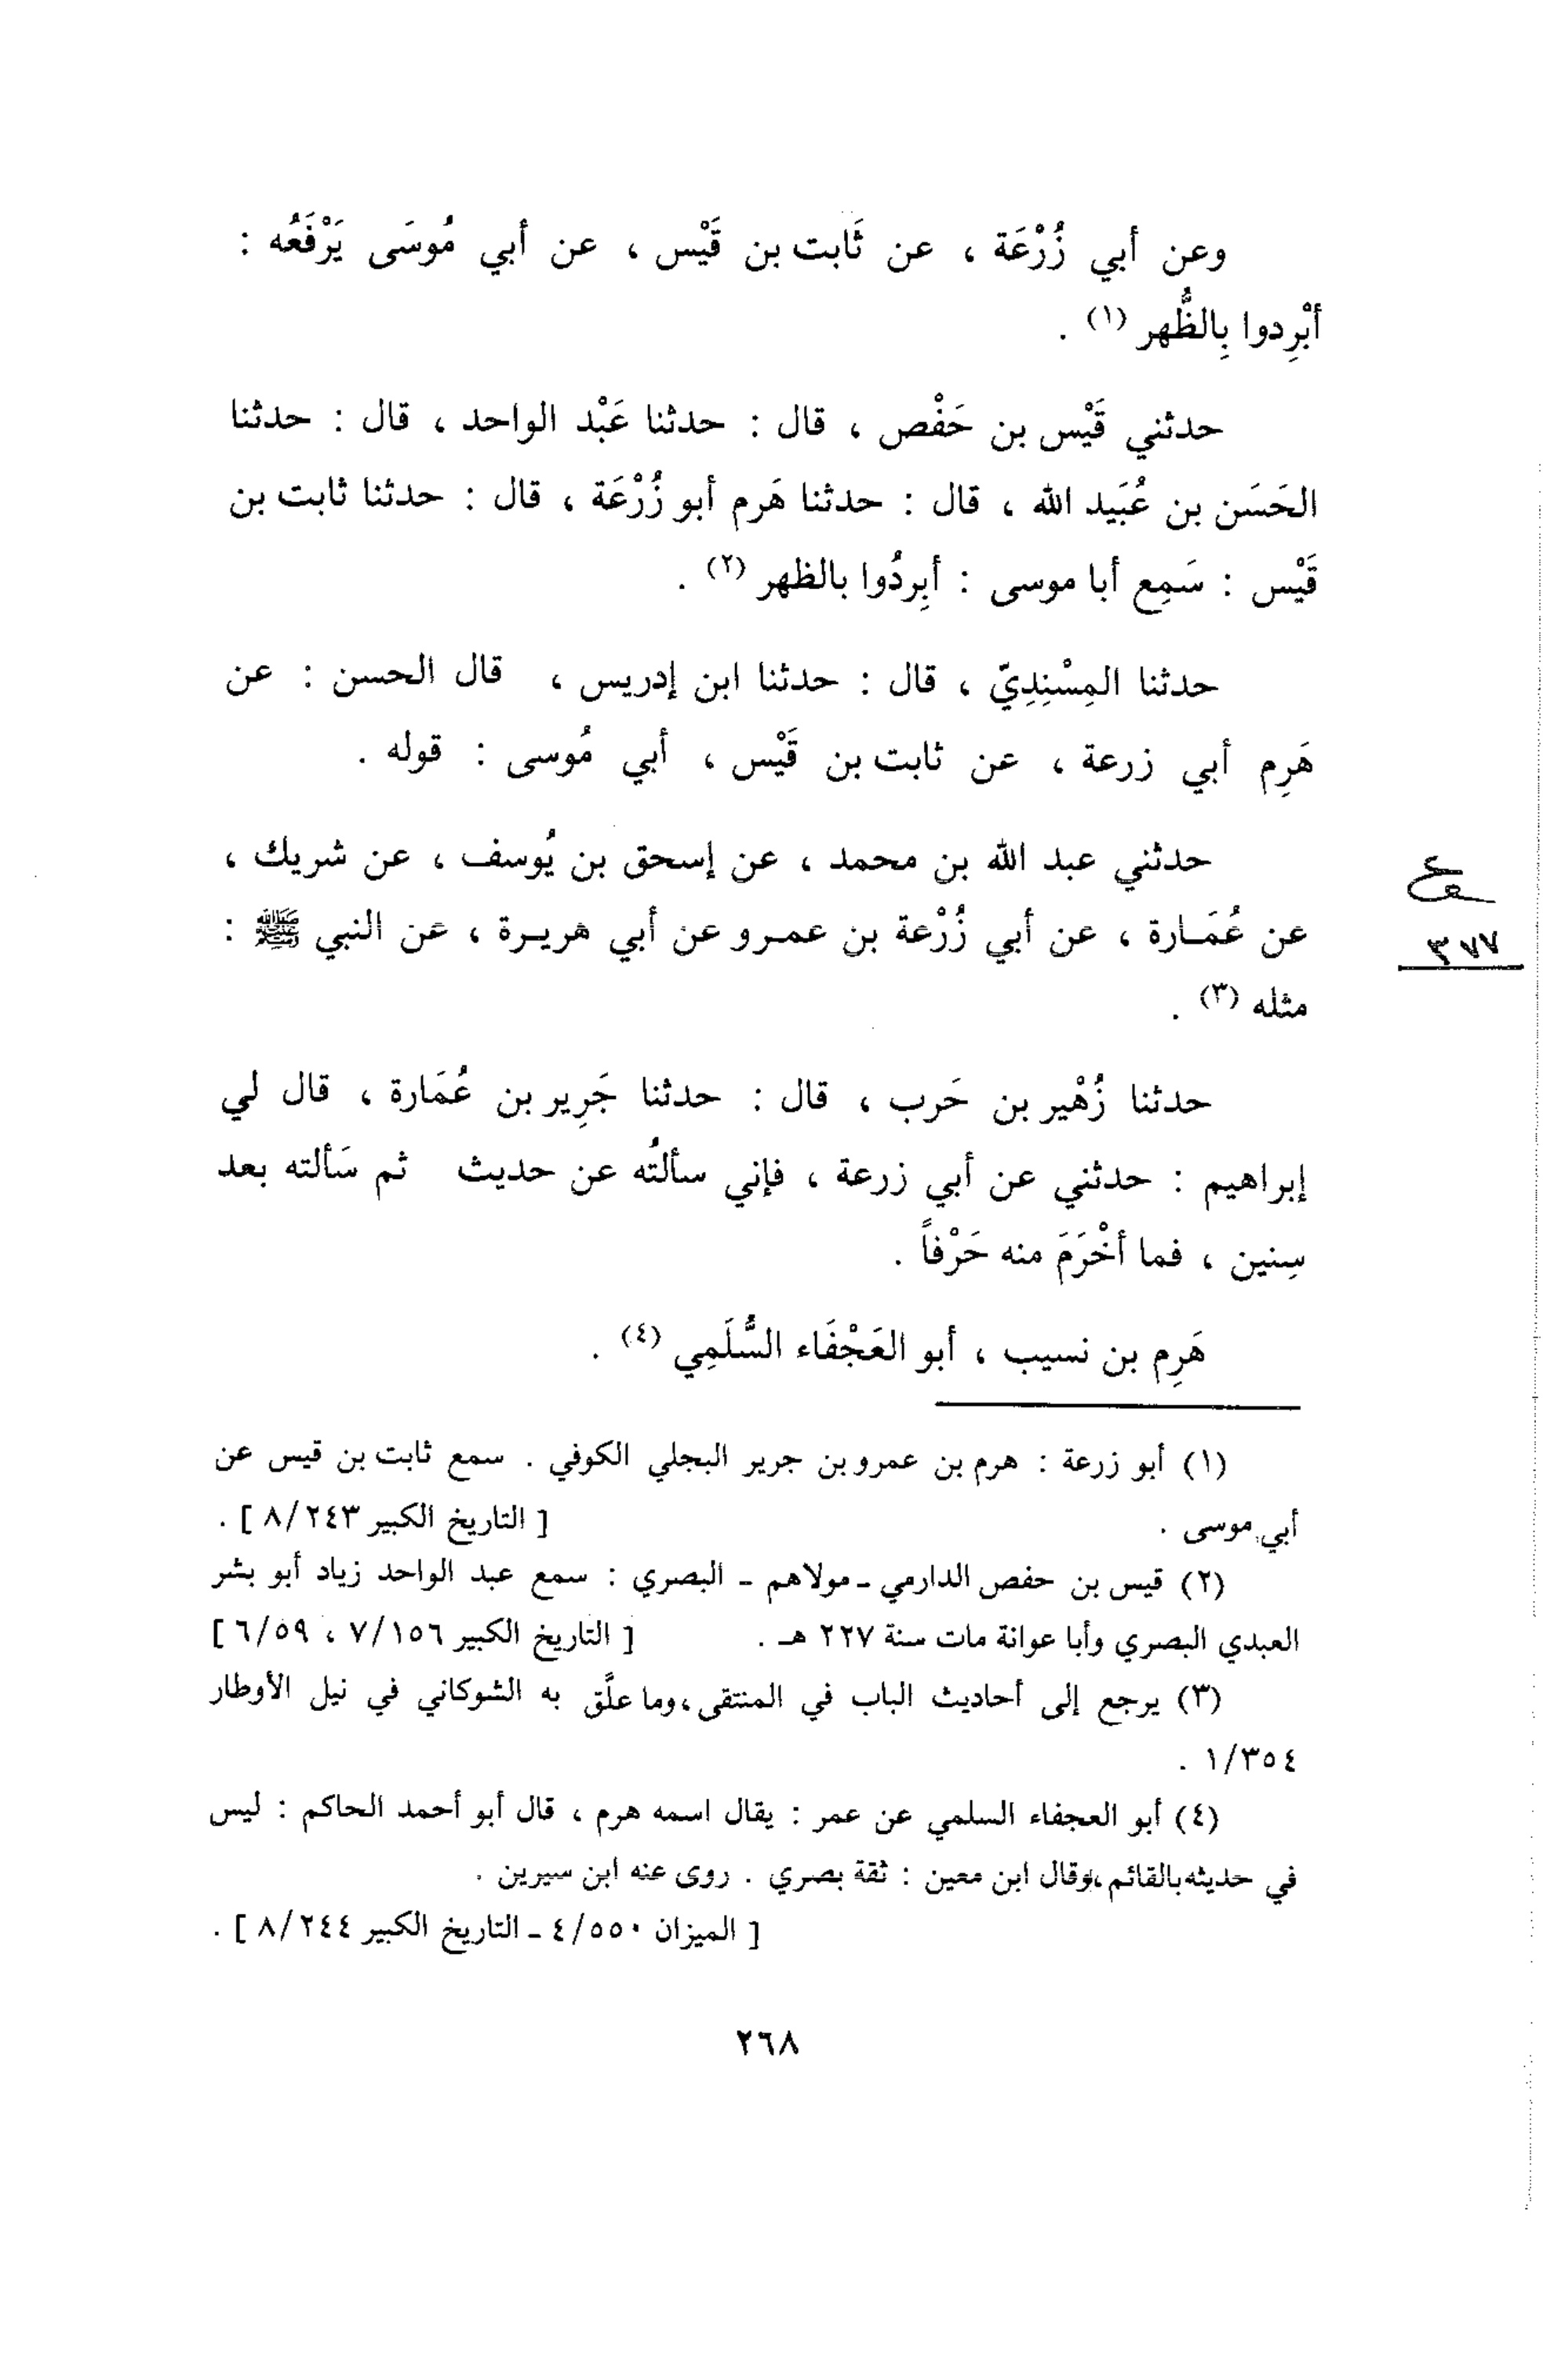 وعن أبي زُرْعَة ، عن ثَابت بن قَيْس ، عن أبي مُوسَى يَرْفَعُه :
أبْرِدوا بِالظُّهر (١) .
حدثني قَيْس بن حَفْص ، قال : حدثنا عَبْد الواحد ، قال : حدثنا
الحَسَن بن عُبَيد الله ، قال : حدثنا هَرم أبو زُرْعَة ، قال : حدثنا ثابت بن
قَيْس : سَمِع أبا موسى : أبِردُوا بالظهر (٢) .
حدثنا المِسْنِدِيّ ، قال : حدثنا ابن إدريس ، قال الحسن : عن
هَرِم أبي زرعة ، عن ثابت بن قَيْس ، أبي مُوسى : قوله .
حدثني عبد الله بن محمد ، عن إسحق بن يُوسف ، عن شريك ،
عن عُمَـارة ، عن أبي زُرْعة بن عمـرو عن أبي هريـرة ، عن النبي ﷺ :
مثله (٣) .
٣٧٧
حدثنا زُهْير بن حَرب ، قال : حدثنا جَرِير بن عُمَارة ، قال لي
إبراهيم : حدثني عن أبي زرعة ، فإني سألتُه عن حديث ثم سَألته بعد
سِنين ، فما أخْرَمَ منه حَرْفاً .
هَرِم بن نسيب ، أبو العَجْفَاء السُّلَمِي (٤) .
(١) أبو زرعة : هرم بن عمرو بن جرير البجلي الكوفي . سمع ثابت بن قيس عن
أبي موسى . [ التاريخ الكبير ٨/٢٤٣ ] .
(٢) قيس بن حفص الدارمي ـ مولاهم ـ البصري : سمع عبد الواحد زياد أبو بشر
العبدي البصري وأبا عوانة مات سنة ٢٢٧ هـ . [ التاريخ الكبير ٧/١٥٦ ، ٦/٥٩ ]
(٣) يرجع إلى أحاديث الباب في المنتقى ، وما علَّق به الشوكاني في نيل الأوطار
١/٣٥٤ .
(٤) أبو العجفاء السلمي عن عمر : يقال اسمه هرم ، قال أبو أحمد الحاكم : ليس
في حديثه بالقائم ، وقال ابن معين : ثقة بصري . روى عنه ابن سيرين .
[ الميزان ٤/٥٥٠ ـ التاريخ الكبير ٨/٢٤٤ ] .
٢٦٨